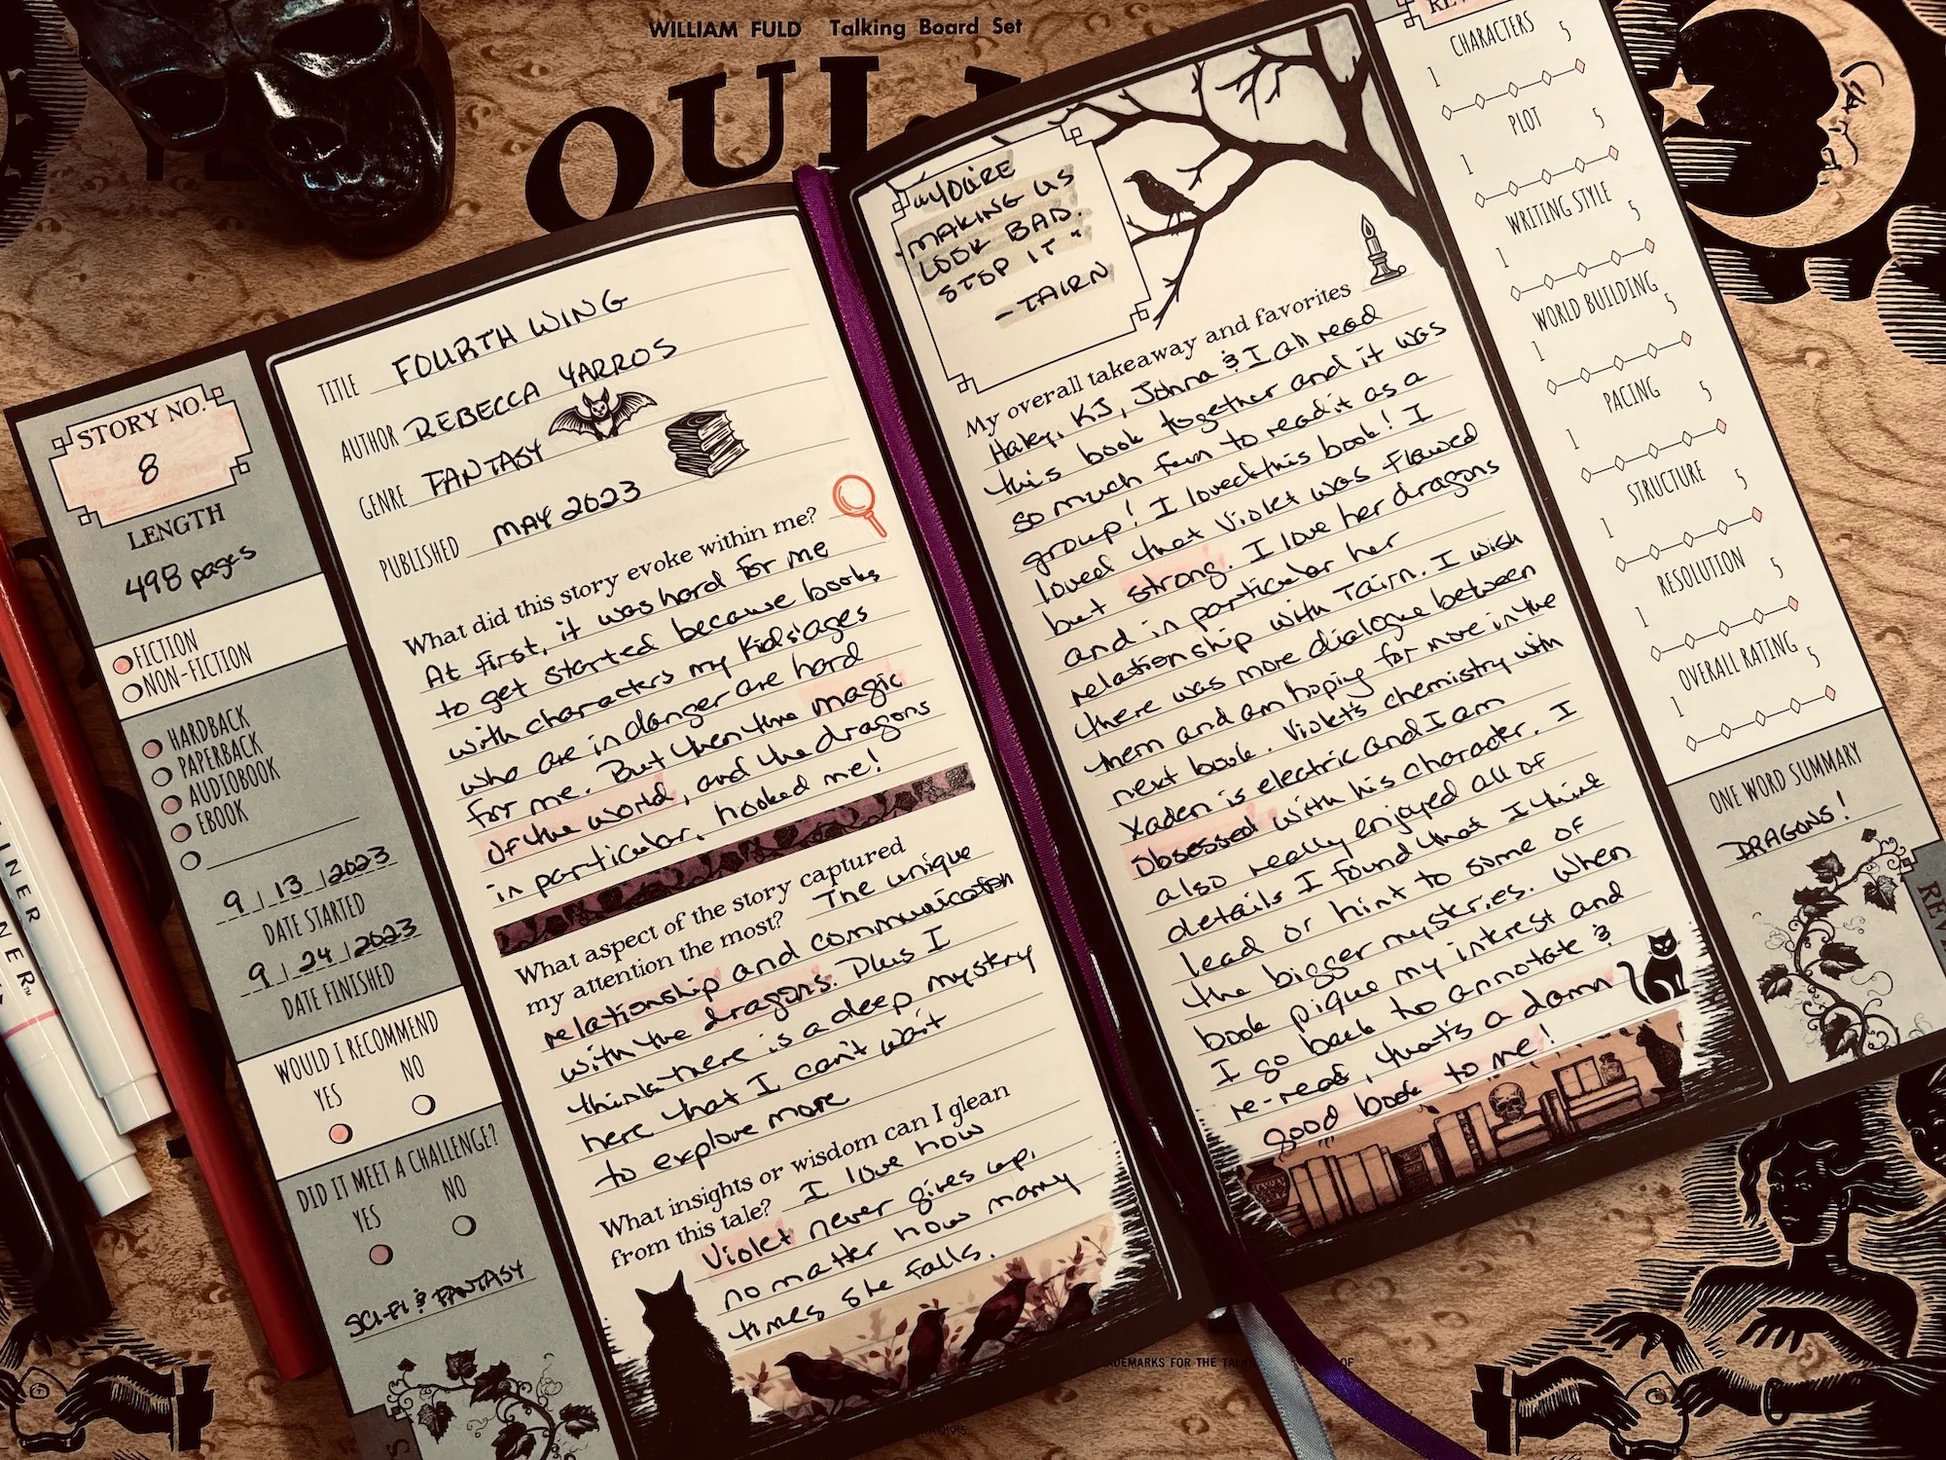 WILLIAM FULD Talking Board Set
OUIJ
STORY NO.
8
LENGTH
498 pages
FICTION
NON-FICTION
HARDBACK
PAPERBACK
AUDIOBOOK
EBOOK
9 | 13 | 2023
DATE STARTED
9 | 24 | 2023
DATE FINISHED
WOULD I RECOMMEND
YES NO
DID IT MEET A CHALLENGE?
YES NO
SCI-FI & FANTASY
TITLE FOURTH WING
AUTHOR REBECCA YARROS
GENRE FANTASY
PUBLISHED MAY 2023
What did this story evoke within me?
At first, it was hard for me
to get started because books
with characters my kids' ages
who are in danger are hard
for me. But then the magic
of the world, and the dragons
in particular, hooked me!
What aspect of the story captured
my attention the most? The unique
relationship and communication
with the dragons. Plus I
think there is a deep mystery
here that I can't wait
to explore more
What insights or wisdom can I glean
from this tale? I love how
Violet never gives up,
no matter how many
times she falls.
"YOU'RE
MAKING US
LOOK BAD.
STOP IT"
-TAIRN
My overall takeaway and favorites
Haley, KJ, Johna & I all read
this book together and it was
so much fun to read it as a
group! I loved this book! I
loved that Violet was flawed
but strong. I love her dragons
and in particular her
relationship with Tairn. I wish
there was more dialogue between
them and am hoping for more in the
next book. Violet's chemistry with
Xaden is electric and I am
obsessed with his character. I
also really enjoyed all of
details I found that I think
lead or hint to some of
the bigger mysteries. When
book pique my interest and
I go back to annotate &
re-read, that's a damn
good book to me!
CHARACTERS
1 5
PLOT
1 5
WRITING STYLE
1 5
WORLD BUILDING
1 5
PACING
1 5
STRUCTURE
1 5
RESOLUTION
1 5
OVERALL RATING
1 5
ONE WORD SUMMARY
DRAGONS!